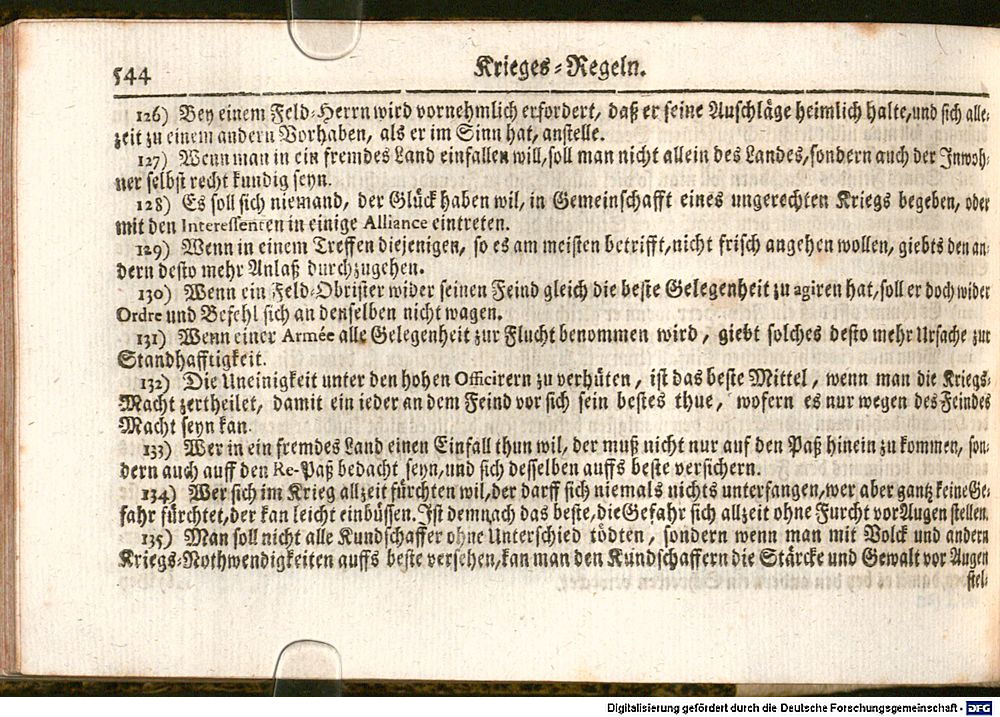 544
Krieges-Regeln.
126) Bey einem Feld-Herrn wird vornehmlich erfordert, daß er seine Anschläge heimlich halte, und sich alle-
zeit zu einem andern Vorhaben, als er im Sinn hat, anstelle.
127) Wenn man in ein fremdes Land einfallen will, soll man nicht allein des Landes, sondern auch der Inwoh-
ner selbst recht kundig seyn.
128) Es soll sich niemand, der Glück haben wil, in Gemeinschafft eines ungerechten Kriegs begeben, oder
mit den Interessenten in einige Alliance eintreten.
129) Wenn in einem Treffen diejenigen, so es am meisten betrifft, nicht frisch angehen wollen, giebts den an-
dern desto mehr Anlaß durchzugehen.
130) Wenn ein Feld-Obrister wider seinen Feind gleich die beste Gelegenheit zu agiren hat, soll er doch wider
Ordre und Befehl sich an denselben nicht wagen.
131) Wenn einer Armée alle Gelegenheit zur Flucht benommen wird, giebt solches desto mehr Ursache zur
Standhafftigkeit.
132) Die Uneinigkeit unter den hohen Officirern zu verhüten, ist das beste Mittel, wenn man die Kriegs-
Macht zertheilet, damit ein ieder an dem Feind vor sich sein bestes thue, wofern es nur wegen des Feindes
Macht seyn kan.
133) Wer in ein fremdes Land einen Einfall thun wil, der muß nicht nur auf den Paß hinein zu kommen, son-
dern auch auff den Re-Paß bedacht seyn, und sich desselben auffs beste versichern.
134) Wer sich im Krieg allzeit fürchten wil, der darff sich niemals nichts unterfangen, wer aber gantz keine Ge-
fahr fürchtet, der kan leicht einbüssen. Ist demnach das beste, die Gefahr sich allzeit ohne Furcht vor Augen stellen.
135) Man soll nicht alle Kundschaffer ohne Unterschied tödten, sondern wenn man mit Volck und andern
Kriegs-Nothwendigkeiten auffs beste versehen, kan man den Kundschaffern die Stärcke und Gewalt vor Augen
stel-
Digitalisierung gefördert durch die Deutsche Forschungsgemeinschaft - DFG